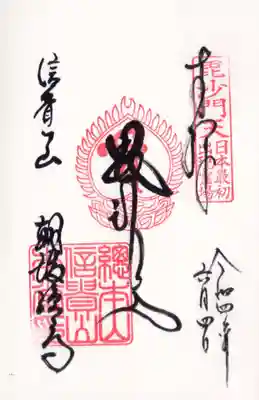 奉拝
毘沙門天日本最初
出現霊場
令和四年
六月四日
毘沙門天
信貴山
朝護孫子寺
總本山
信貴山